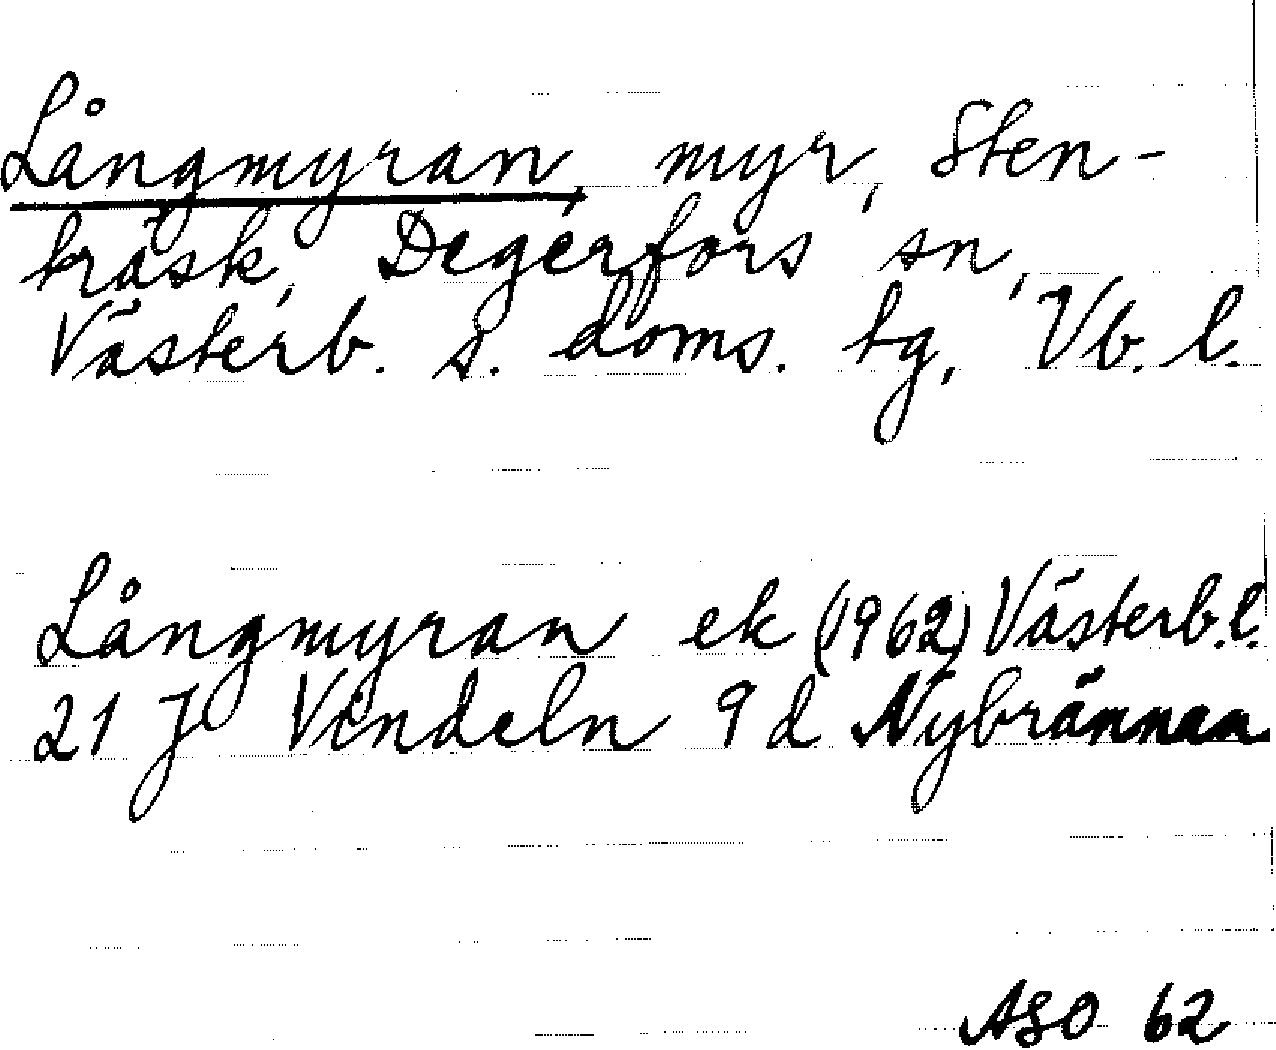 Långmyran, myr, Sten-
träsk, Degerfors sn,
Västerb. s. doms. tg, Vb. l.
Långmyran ek (1962) Västerb. l.
21 J Vindeln 9 d Nybrännan
ASO 62